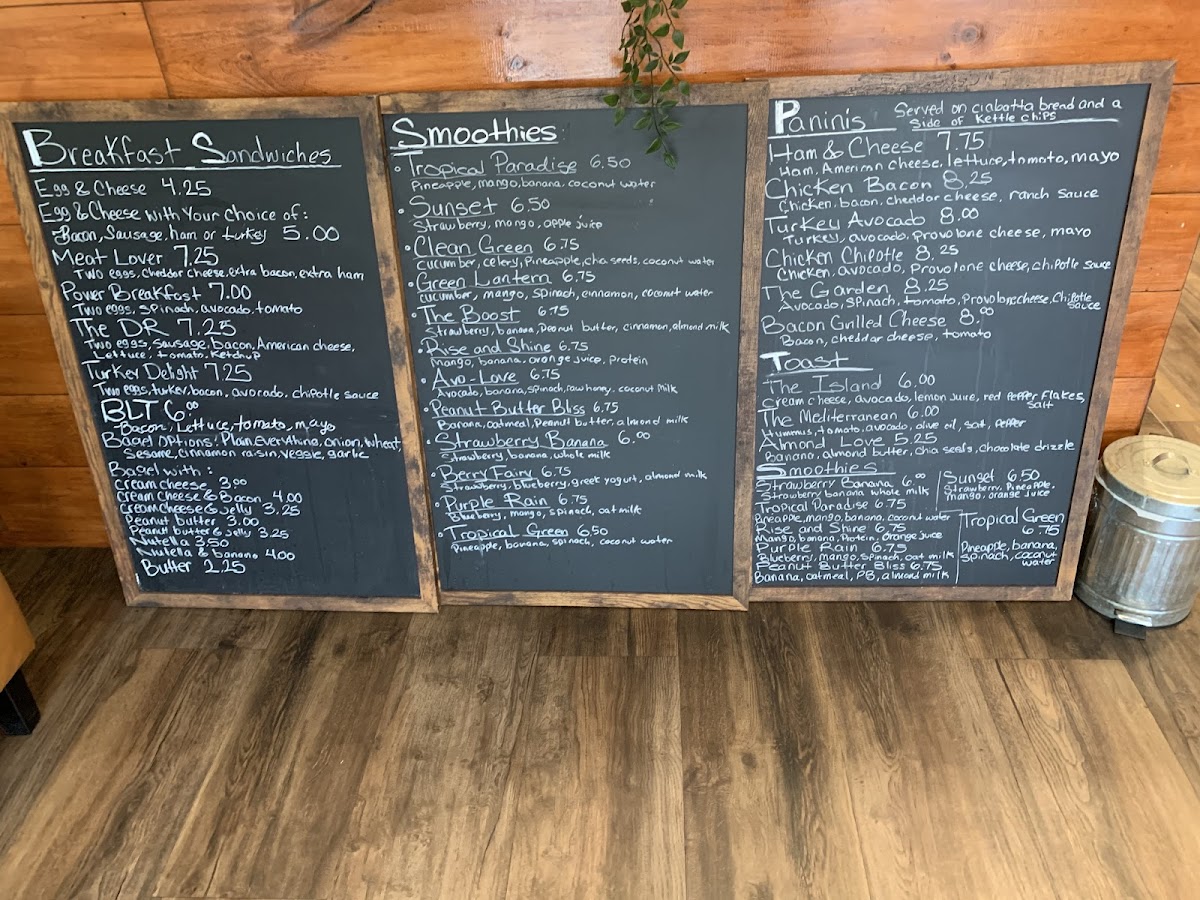 Breakfast Sandwiches
Egg & Cheese 4.25
Egg & Cheese with Your choice of:
Bacon, Sausage, ham or turkey 5.00
Meat Lover 7.25
Two eggs, cheddar cheese, extra bacon, extra ham
Power Breakfast 7.00
Two eggs, spinach, avocado, tomato
The DR 7.25
Two eggs, sausage, bacon, American cheese,
Lettuce, tomato, Ketchup
Turkey Delight 7.25
Two eggs, turkey, bacon, avocado, chipotle sauce
BLT 6.00
Bacon, Lettuce, tomato, mayo
Bagel options: Plain, Everything, onion, wheat,
Sesame, cinnamon raisin, veggie, garlic
Bagel with:
cream cheese 3.00
cream cheese & Bacon 4.00
cream cheese & Jelly 3.25
Peanut butter 3.00
Peanut butter & Jelly 3.25
Nutella 3.50
Nutella & banana 4.00
Butter 2.25
Smoothies
Tropical Paradise 6.50
Pineapple, mango, banana, coconut water
Sunset 6.50
Strawberry, mango, apple juice
Clean Green 6.75
cucumber, celery, Pineapple, chia seeds, coconut water
Green Lantern 6.75
cucumber, mango, spinach, cinnamon, coconut water
The Boost 6.75
Strawberry, banana, Peanut butter, cinnamon, almond milk
Rise and Shine 6.75
Mango, banana, orange juice, protein
Avo-Love 6.75
Avocado, banana, spinach, raw honey, coconut milk
Peanut Butter Bliss 6.75
Banana, oatmeal, Peanut butter, almond milk
Strawberry Banana 6.00
Strawberry, banana, whole milk
Berry Fairy 6.75
Strawberry, blueberry, greek yogurt, almond milk
Purple Rain 6.75
Blueberry, mango, spinach, oat milk
Tropical Green 6.50
Pineapple, banana, spinach, coconut water
Paninis Served on ciabatta bread and a
side of Kettle chips
Ham & Cheese 7.75
Ham, American cheese, lettuce, tomato, mayo
Chicken Bacon 8.25
Chicken, bacon, cheddar cheese, ranch sauce
Turkey Avocado 8.00
Turkey, avocado, provolone cheese, mayo
Chicken Chipotle 8.25
Chicken, avocado, Provolone cheese, chipotle sauce
The Garden 8.25
Avocado, spinach, tomato, Provolone cheese, Chipotle
sauce
Bacon Grilled Cheese 8.00
Bacon, cheddar cheese, tomato
Toast
The Island 6.00
cream cheese, avocado, lemon juice, red pepper flakes,
salt
The Mediterranean 6.00
Hummus, tomato, avocado, olive oil, salt, pepper
Almond Love 5.25
Banana, almond butter, chia seeds, chocolate drizzle
Smoothies
Strawberry Banana 6.00
Strawberry banana whole milk
Tropical Paradise 6.75
Pineapple, mango, banana, coconut water
Rise and Shine 6.75
Mango, banana, Protein, orange juice
Purple Rain 6.75
Blueberry, mango, spinach, oat milk
Peanut Butter Bliss 6.75
Banana, oatmeal, PB, almond milk
Sunset 6.50
Strawberry, Pineapple,
mango, orange juice
Tropical Green
6.75
Pineapple, banana,
spinach, coconut
water